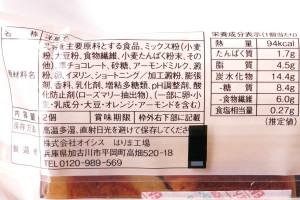 名称 洋菓子
栄養成分表示(1個当たり)
乳等を主要原料とする食品、ミックス粉(小麦
粉、大豆粉、食物繊維、小麦たんぱく粉末、その
他)、準チョコレート、砂糖、アーモンドミルク、濃
卵、イヌリン、ショートニング/加工澱粉、膨張
剤、香料、乳化剤、増粘多糖類、pH調整剤、酸
化防止剤(ローズマリー抽出物)、(一部に卵・小
麦・乳成分・大豆・オレンジ・アーモンドを含む)
原材料名
熱量 94kcal
たんぱく質 1.7g
脂質 4.5g
炭水化物 14.4g
-糖質 8.4g
-食物繊維 6.0g
食塩相当量 0.27g
(推定値)
2個 賞味期限 枠外右下部に記載
保存方法 高温多湿、直射日光を避けて保存してください。
株式会社オイシス はりま工場
兵庫県加古川市平岡町高畑520-18
TEL0120-989-569